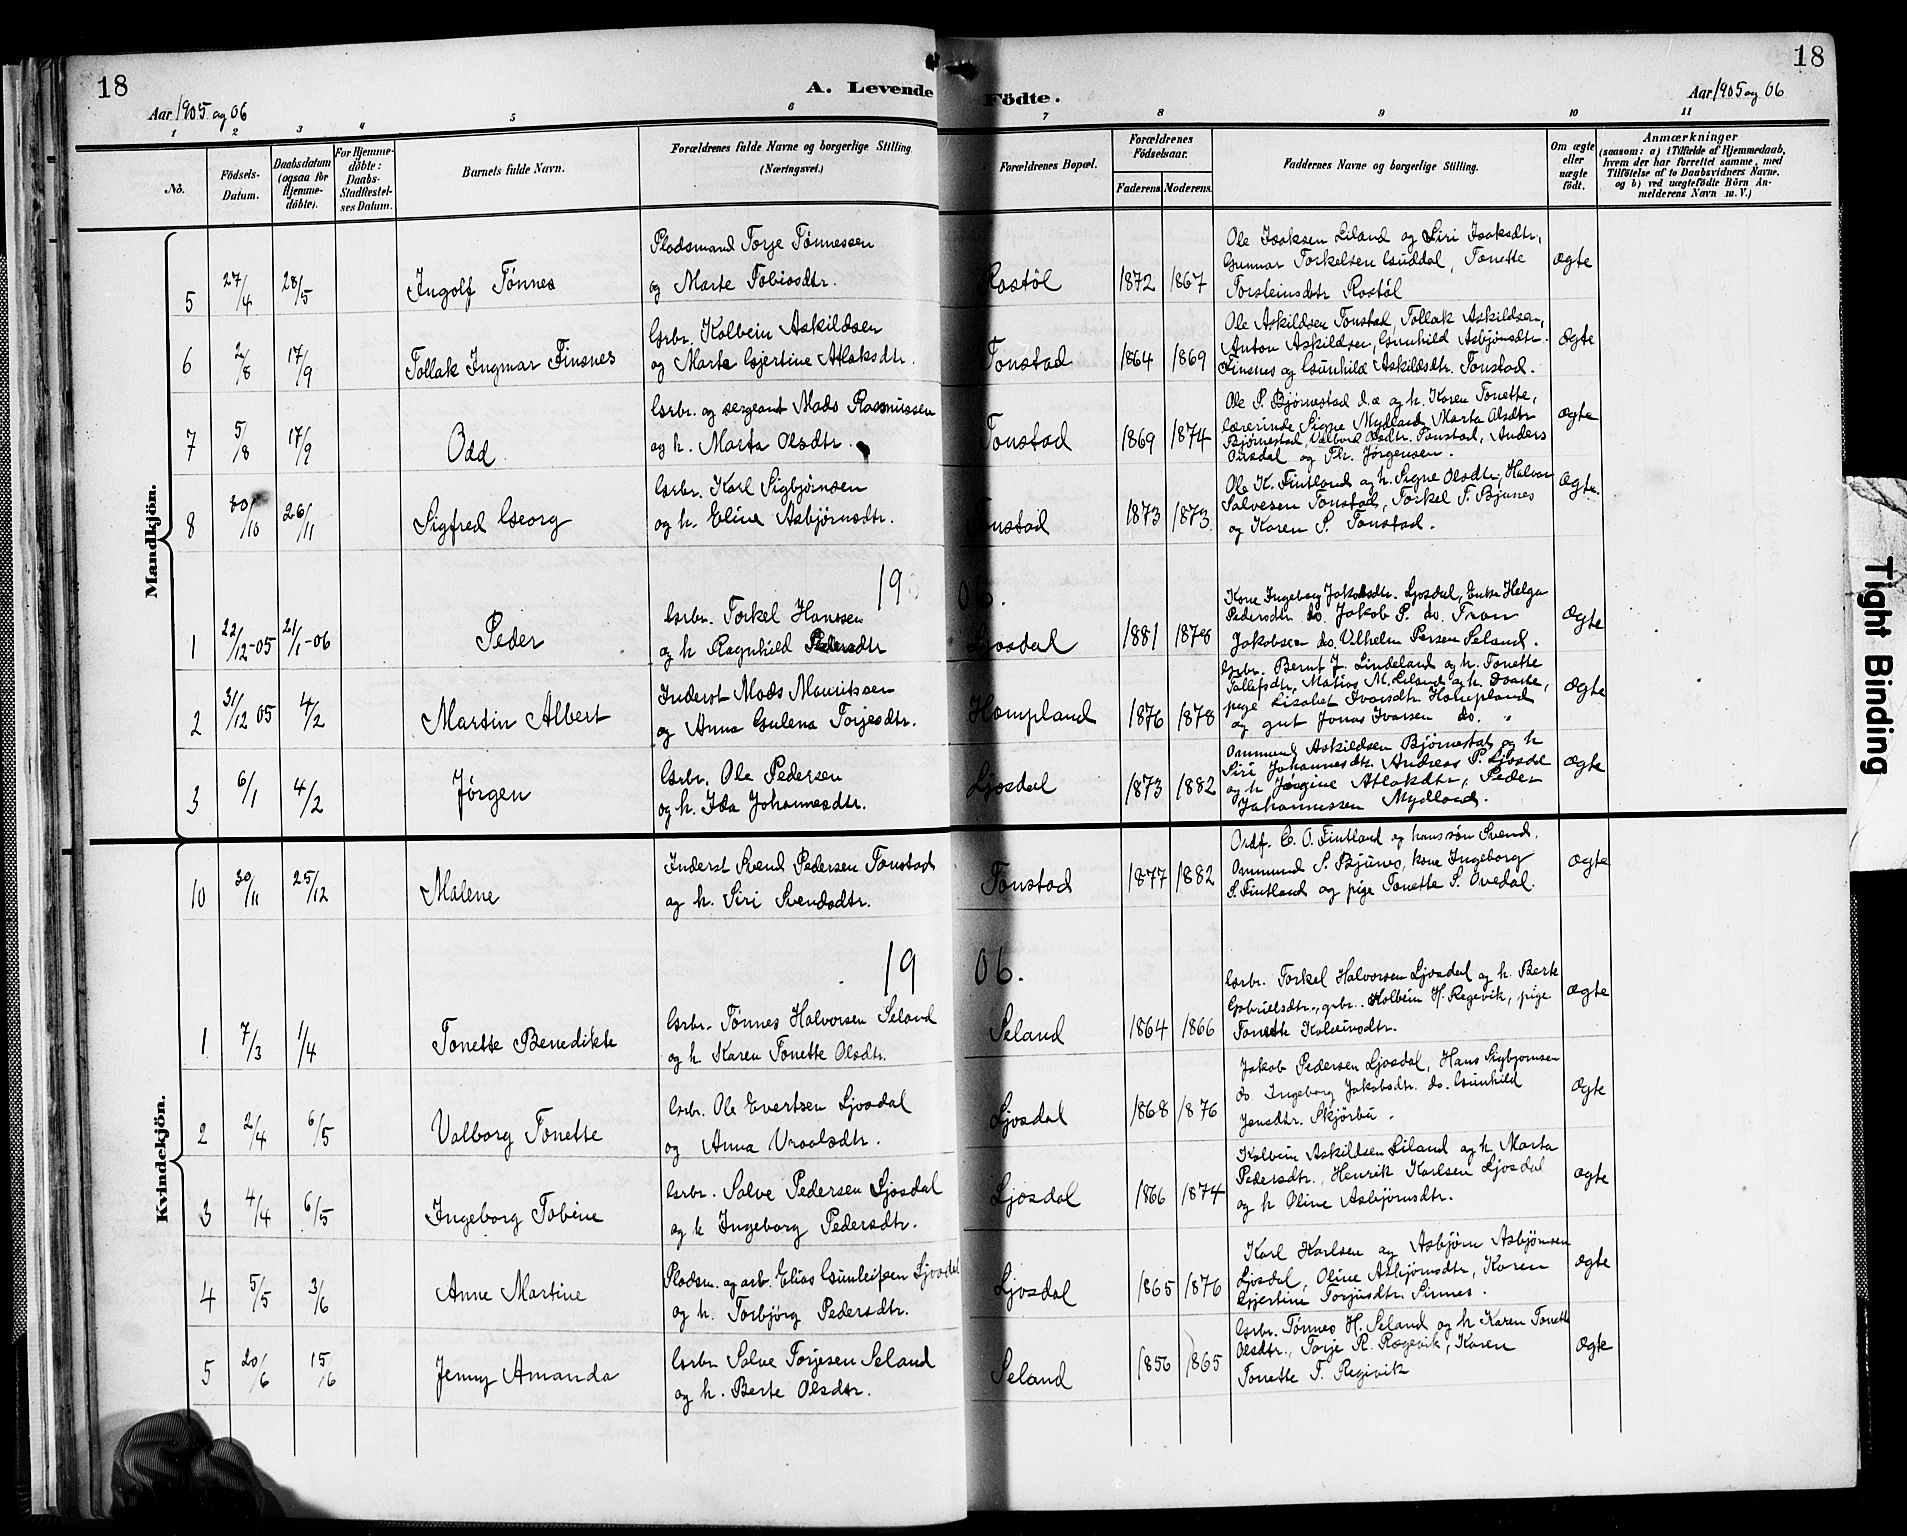 18
18
A. Levende Födte.
Aar 1905 og 06
Aar 1905 og 06
1 2 3 4 5 6 7 8 9 10 11
No.
Födsels-Datum.
Daabsdatum (ogsaa for Hjemme-döbte).
For Hjemme-döbte: Daabs-Stadfæstel-ses Datum.
Barnets fulde Navn.
Forældrenes fulde Navne og borgerlige Stilling (Næringsvei.)
Forældrenes Bopæl.
Forældrenes Födselsaar.
Faderens. Moderens.
Faddernes Navne og borgerlige Stilling.
Om ægte eller uægte født.
Anmærkninger
(saasom: a) i Tilfælde af Hjemmedaab, hvem der har forrettet samme, med Tilföielse af to Daabsvidners Navne, og b) ved uægtefödte Börn An-melderens Navn m. V.)
Mandkjön.
5 27/4 28/5 Ingolf Tønnes
Pladsmand Torje Tønnessen
og Marte Tobiasdtr.
Rostøl 1872 1867
Ole Isaksen Liland og Siri Isaksdtr,
Gunnar Torkelsen Guddal, Tonette
Torsteinsdtr Rostøl
Ægte
6 2/8 17/9 Tollak Ingmar Finsnes
Grbr. Kolbein Askildsen
og Marta Gjertine Atlaksdtr.
Tonstad 1864 1869
Ole Askildsen Tonstad, Tollak Askildsen,
Anton Askildsen, Gunhild Asbjørnsdtr.
Finsnes og Gunhild Askildsdtr. Tonstad.
Ægte
7 5/8 17/9 Odd
Grbr. og sergeant Mads Rasmussen
og h. Marta Olsdtr.
Tonstad 1869 1874
Ole P. Bjørnestad d.æ og h. Karen Tonette,
lærerinde Signe Mydland, Marta Olsdtr
Bjørnestad, Valborg Olsdtr. Tonstad, Anders
Ousdal og Th. Jørgensen.
Ægte
8 30/10 26/11 Sigfred Georg
Grbr. Karl Sigbjørnsen
og h. Eline Asbjørnsdtr.
Tonstad 1873 1873
Ole K. Fintland og h. Signe Olsdtr, Halvor
Salvesen Tonstad, Torkel T. Bjunes
og Karen S. Tonstad.
Ægte.
1906.
1 22/12-05 21/1-06 Peder
Grbr. Torkel Hanssen
og h Ragnhild Pedersdtr
Ljosdal 1881 1878
Kone Ingeborg Jakobsdtr. Ljosdal, Enke Helga
Pedersdtr do. Jakob P. do. Tron
Jakobsen do. Vilhelm Persen Seland.
Ægte
2 31/12 05 4/2 Martin Albert
Inderst Mads Mauritssen
og Anna Gulena Torjesdtr.
Hompland 1876 1878
Grbr. Bernt J. Lindeland og h. Tonette
Tollefsdtr, Matias M. Liland og h. Doarte,
pige Lisabet Ivarsdtr Hompland
og gut Jonas Ivarsen do.
Ægte
3 6/1 4/2 Jørgen
Grbr. Ole Pedersen
og h. Ida Johannesdtr.
Ljosdal 1873 1882
Ommund Askildsen Bjørnestad og h
Siri Johannesdtr Andreas P. Ljosdal
og h Jørgine Atlakdtr, Peder
Johannessen Mydland.
Ægte
Kvindekjön.
10 30/11 25/12 Malene
Inderst Svend Pedersen Tonstad
og h. Siri Svendsdtr.
Tonstad 1877 1882
Ordf. C. O. Fintland og hans søn Svend,
Ommund S. Bjunes, kone Ingeborg
S. Fintland og pige Tonette S. Ovedal.
Ægte
1906.
1 7/3 1/4 Tonette Benedikte
Grbr. Tønnes Halvorsen Seland
og h. Karen Tonette Olsdtr.
Seland 1864 1866
Grbr. Torkel Halvorsen Ljosdal og h. Berte
Gabrielsdtr., grbr. Kolbein H. Regevik, pige
Tonette Kolbeinsdtr.
Ægte
2 2/4 6/5 Valborg Tonette
Grbr. Ole Evertsen Ljosdal
og Anna Vraalsdtr.
Ljosdal 1868 1876
Jakob Pedersen Ljosdal, Hans Sigbjørnsen
do Ingeborg Jakobsdtr. do. Gunhild
Jensdtr. Skjørbu.
Ægte
3 4/4 6/5 Ingeborg Tobine
Grbr. Salve Pedersen Ljosdal
og h Ingeborg Pedersdtr.
Ljosdal 1866 1874
Kolbein Askildsen Liland og h. Marta
Pedersdtr., Henrik Karlsen Ljosdal
og h Oline Asbjørnsdtr.
Ægte
4 5/5 3/6 Anne Martine
Pladsm. og arb. Elias Gunleifsen Ljosdal
og h. Torbjørg Pedersdtr.
Ljosdal 1865 1876
Karl Karlsen og Asbjørn Asbjørnsen
Ljosdal, Oline Asbjørnsdtr, Karen
Gjertine Torjusdtr. Sirnes.
Ægte
5 20/6 15/6 Jenny Amanda
Grbr Salve Torjesen Seland
og h. Berte Olsdtr.
Seland 1856 1865
Grbr. Tønnes H. Seland og h Karen Tonette
Olsdtr., Torje R. Regevik, Karen
Tonette T. Regivik
Ægte
Tight Binding